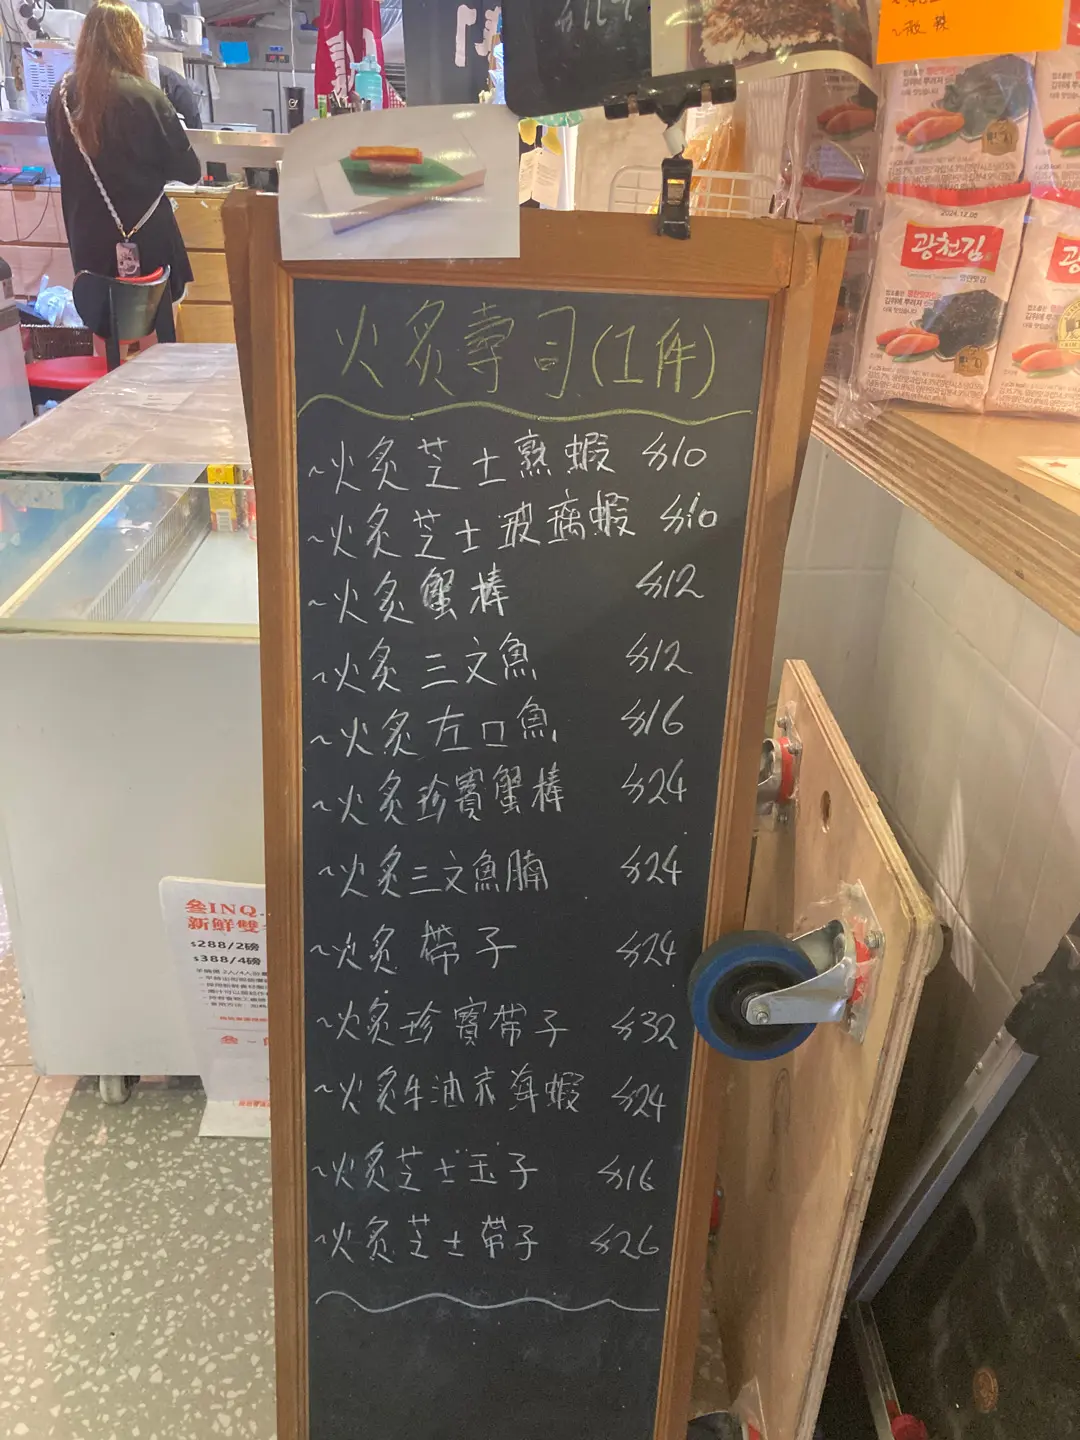 火炙壽司(1件)
~火炙芝士熟蝦 $10
~火炙芝士玻璃蝦 $10
~火炙蟹棒 $12
~火炙三文魚 $12
~火炙左口魚 $16
~火炙珍寶蟹棒 $24
~火炙三文魚腩 $24
~火炙帶子 $24
~火炙珍寶帶子 $32
~火炙牛油赤海蝦 $24
~火炙芝士玉子 $16
~火炙芝士帶子 $26
광천김
2024.12.05
叁INQ.
新鮮雙
$288/2磅
$388/4磅